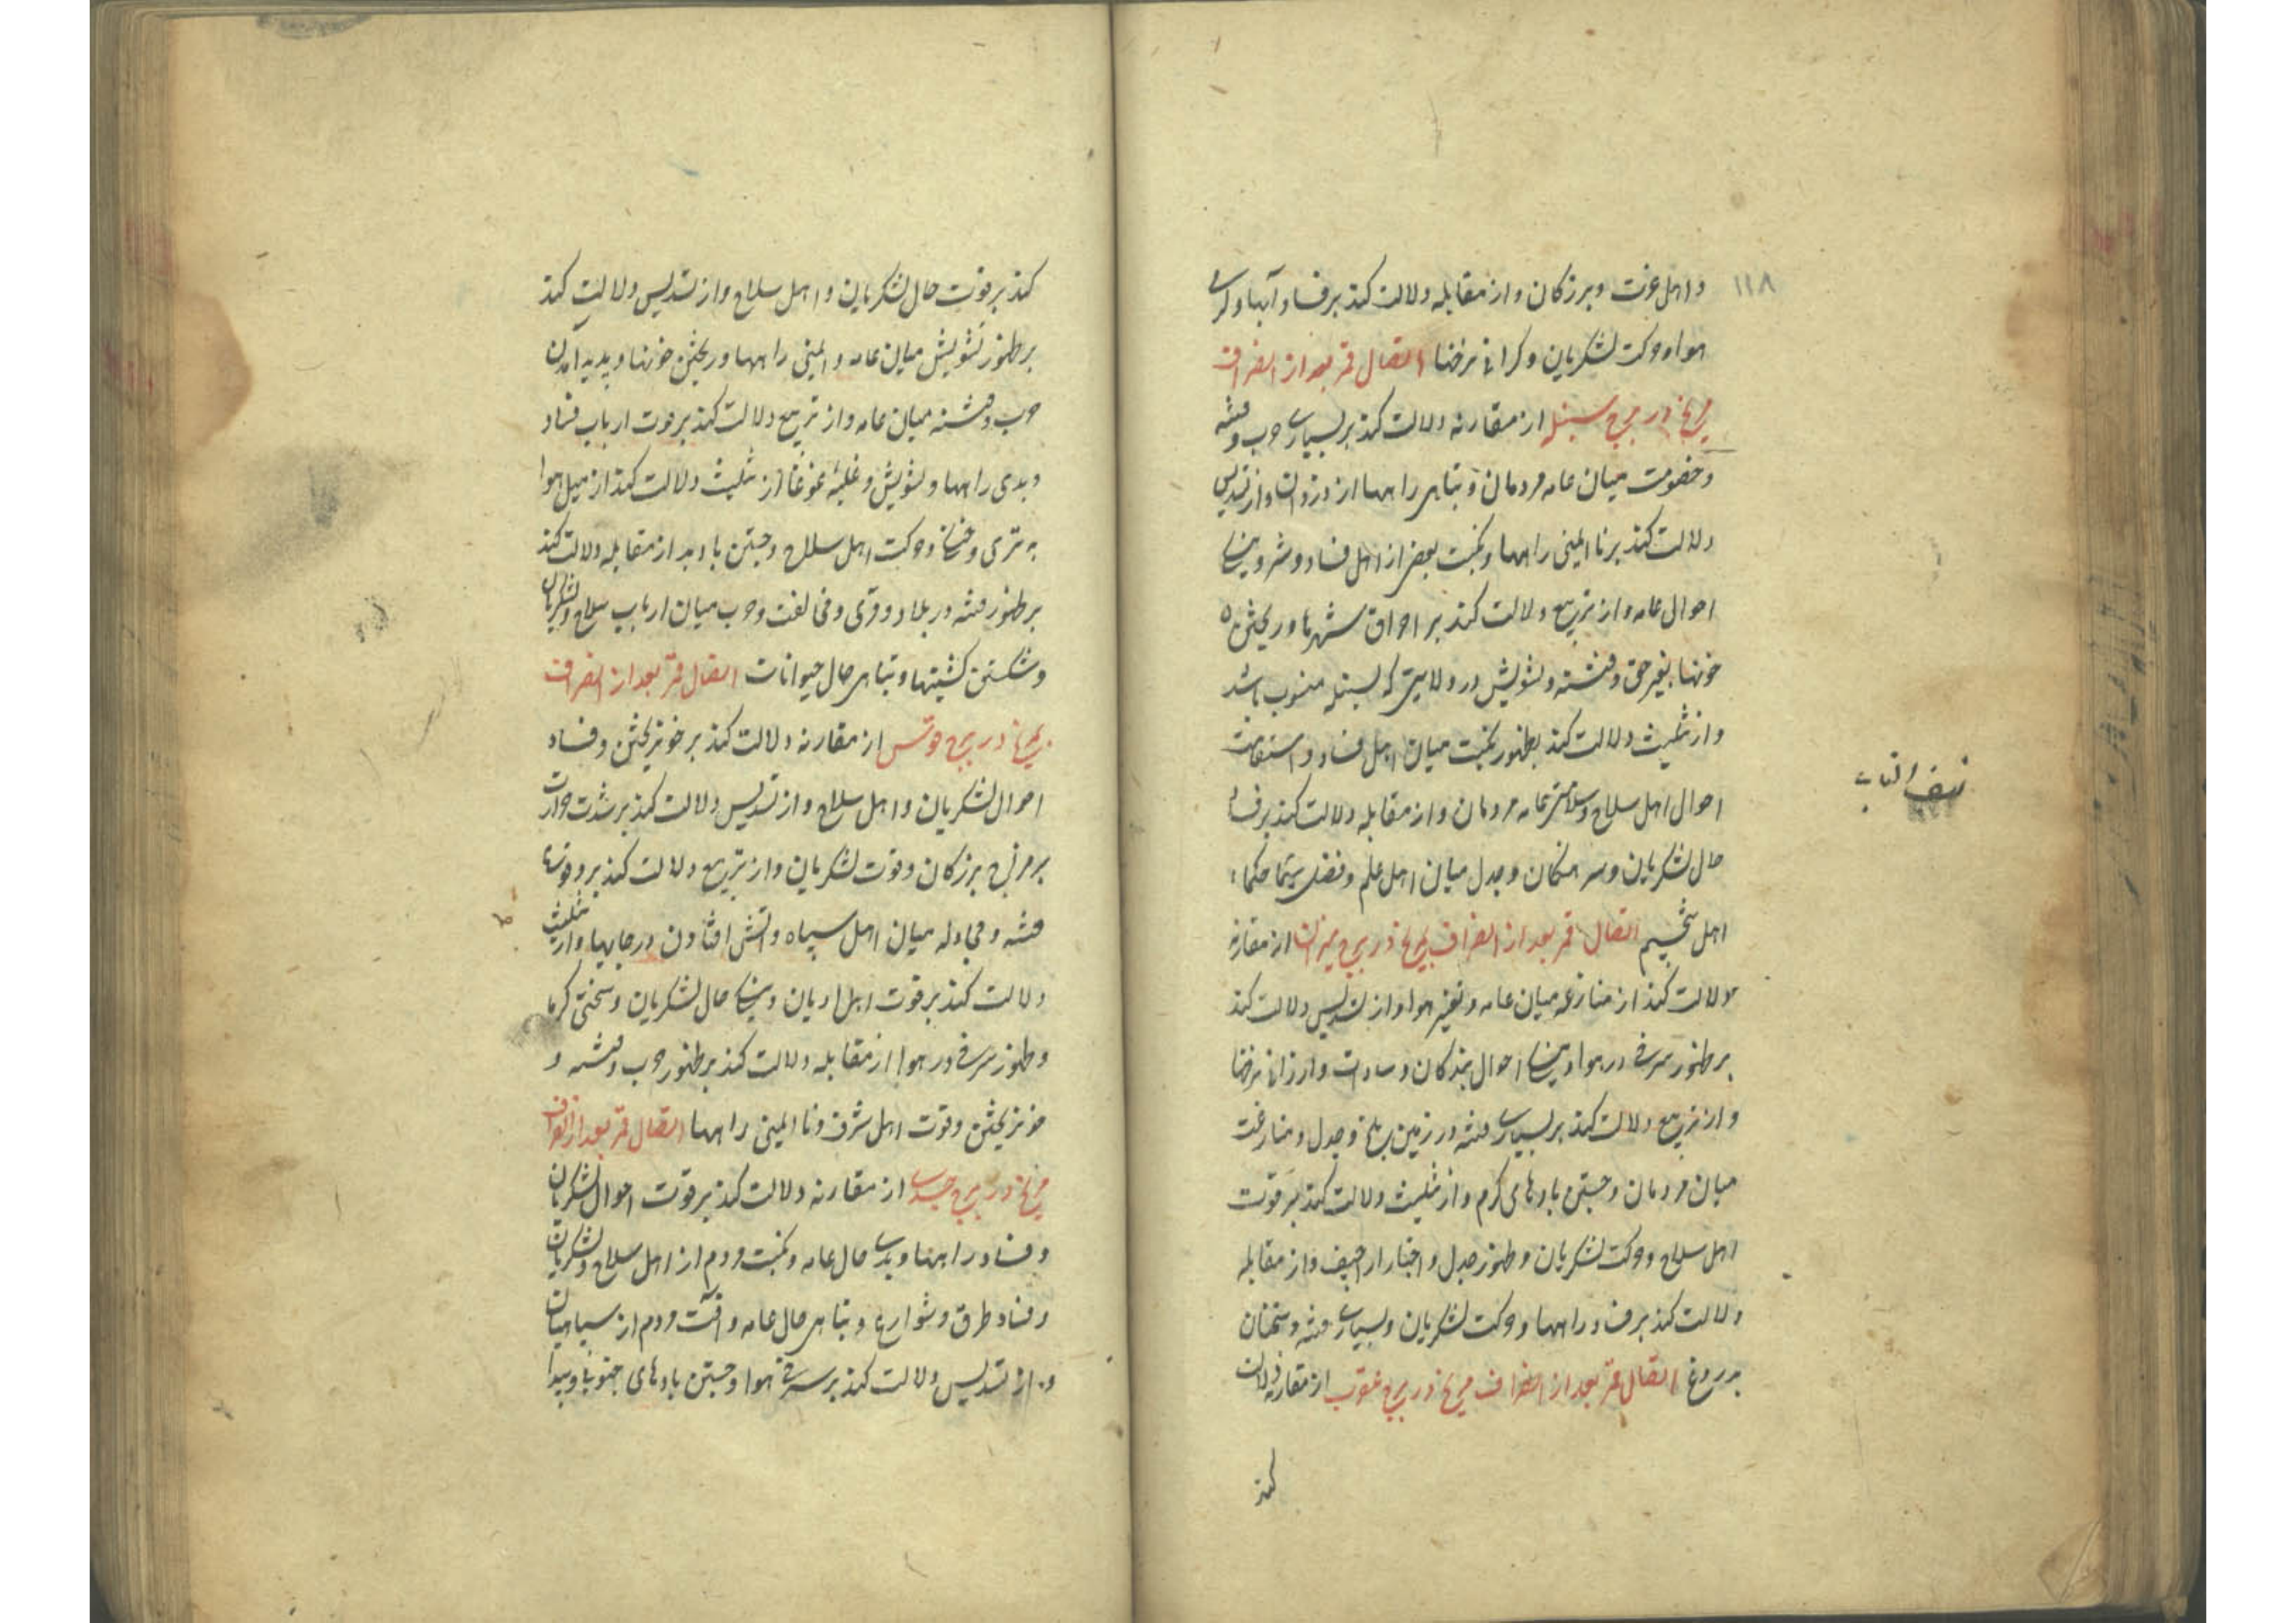 ۱۱۸
و اهل عزت و بزرکان و از مقابله دلالت کند بر فساد آبها و کرمی
هوا و حرکت لشکریان و کرانی نرخها اتصال قمر بعد از انصراف
مریخ در برج سنبله از مقارنه دلالت کند بر بسیاری حرب و فتنه
و خصومت میان عامه مردمان و تباهی راهها از دزدان و از تسدیس
دلالت کند بر ناایمنی راهها و نکبت بعضی از اهل فساد و شر و نیکی
احوال عامه و از تربیع دلالت کند بر احراق شهرها و ریختن
خونها بغیر حق و فتنه و تشویش در ولایتی که بسنبله منسوب باشد
و از تثلیث دلالت کند بظهور نکبت میان اهل فساد و استقامت
احوال اهل سلاح و سلامتی عامه مردمان و از مقابله دلالت کند بر فساد
حال لشکریان و سرهنکان و جدل میان اهل علم و فضل سیما حکماء
اهل تنجیم اتصال قمر بعد از انصراف مریخ در برج میزان از مقارنه
دلالت کند از منازعه میان عامه و تغیر هوا و از تسدیس دلالت کند
بر ظهور سرخی در هوا و نیکی احوال بزرکان و سادات و ارزانی نرخها
و از تربیع دلالت کند بر بسیاری فتنه در زمین و جدل و منازعت
میان مردمان و جستن بادهای کرم و از تثلیث دلالت کند بر قوت
اهل سلاح و حرکت لشکریان و ظهور جدل و اخبار اراجیف و از مقابله
دلالت کند بر فساد راهها و حرکت لشکریان و بسیاری فتنه و سخنان
بدروغ اتصال قمر بعد از انصراف مریخ در برج عقرب از مقارنه دلالت
کند
نصف الکتاب
کند بر قوت حال لشکریان و اهل سلاح و از تسدیس دلالت کند
بر ظهور تشویش میان عامه و ایمنی راهها و ریختن خونها و پدید آمدن
حرب و فتنه میان عامه و از تربیع دلالت کند بر قوت ارباب فساد
و بدی راهها و تشویش و غلبه غوغا از تثلیث دلالت کند از میل هوا
به تری و خنکی و حرکت اهل سلاح و جستن باد بد از مقابله دلالت کند
بر ظهور فتنه در بلاد و قری و مخالفت و حرب میان ارباب سلاح و لشکریان
و شکستن کشتیها و تباهی حال حیوانات اتصال قمر بعد از انصراف
مریخ در برج قوس از مقارنه دلالت کند بر خونریختن و فساد
احوال لشکریان و اهل سلاح و از تسدیس دلالت کند بر شدت حرارت
بر مزاج بزرکان و قوت لشکریان و از تربیع دلالت کند بر وقوع
فتنه و مجادله میان اهل سپاه و آتش افتادن در جایها و از تثلیث
دلالت کند بر قوت اهل ادیان و نیکی حال لشکریان و سختی کرما
و ظهور سرخی در هوا از مقابله دلالت کند بر ظهور حرب و فتنه و
خونریختن و قوت اهل شرف و ناایمنی راهها اتصال قمر بعد از انصراف
مریخ در برج جدی از مقارنه دلالت کند بر قوت احوال لشکریان
و فساد راهها و بدی حال عامه و نکبت مردم از اهل سلاح و لشکریان
و فساد طرق و شوارع و تباهی حال عامه و آفت مردم از سپاهیان
و از تسدیس دلالت کند بر سرخی هوا و جستن بادهای جنوبی و پیدا